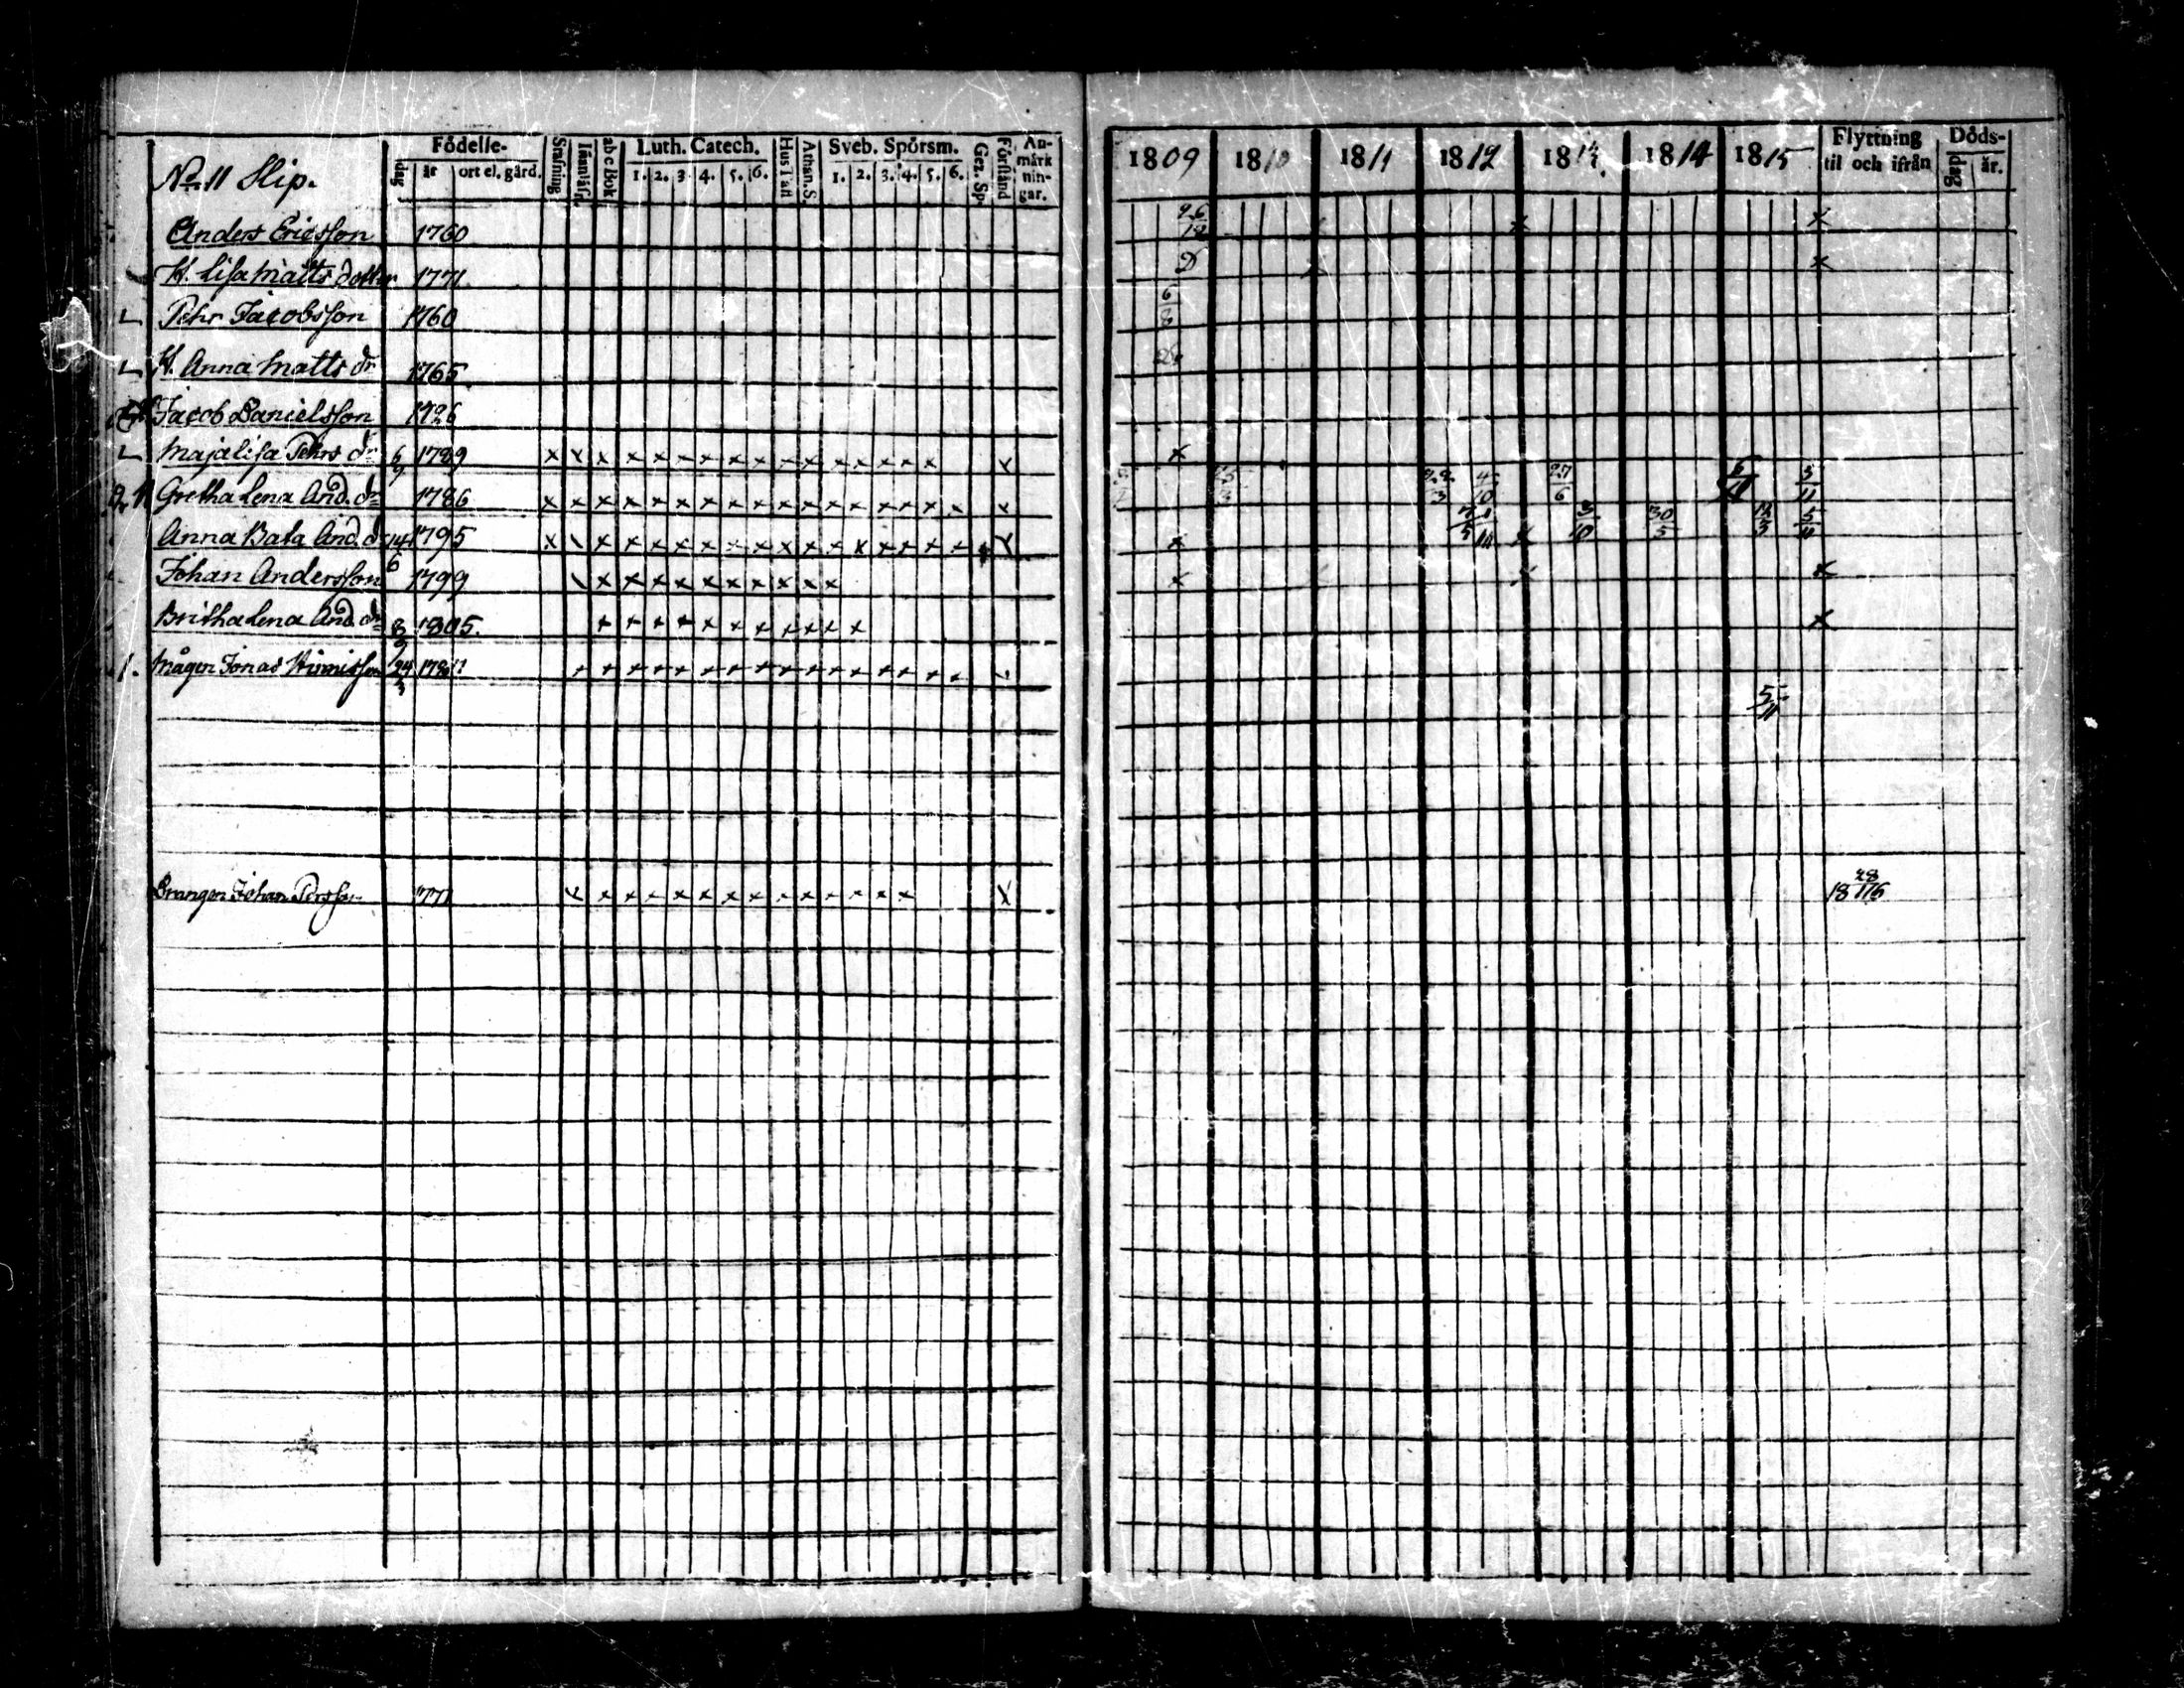 No. 11 Slip.
Födelse-
dag år ort el. gård.
Stafning Innanläsn. abc Bok
Luth. Catech.
1. 2. 3. 4. 5. 6.
Hus Tafl Athan. S.
Sveb. Spörsm.
1. 2. 3. 4. 5. 6.
Gez. Sp. Förstånd
An-
märk
nin-
gar.
1809 1810 1811 1812 1813 1814 1815
Flyttning
til och ifrån
Döds-
dag år.
Anders Ericsson 1760
H. Lisa Matts dotter 1771 D
Pehr Jacobsson 1760 6/8
H. Anna Matts dr 1765
Jacob Danielsson 1726
Maja Lisa Pehrs dr 6/9 1789 x x x x x x x x x x x x x x x x x x
Gretha Lena And. dr 1786 x x x x x x x x x x x x x x x x x x 4/10 27/6 5/11
Anna Kaia And. d 14/6 1795 x x x x x x x x x x x x x x x x x x 3/10 30/5 5/11
Johan Andersson 1799 x x x x x x x x x x x x x
Britha Lena And. dr 8/9 1805. x x x x x x x x x x x x
Mågen Jonas Hinnisson 24/3 x x x x x x x x x x x x x x x x 5/11
Drängen Johan Persson 1771 x x x x x x x x x x x x x x x 28/11 1816